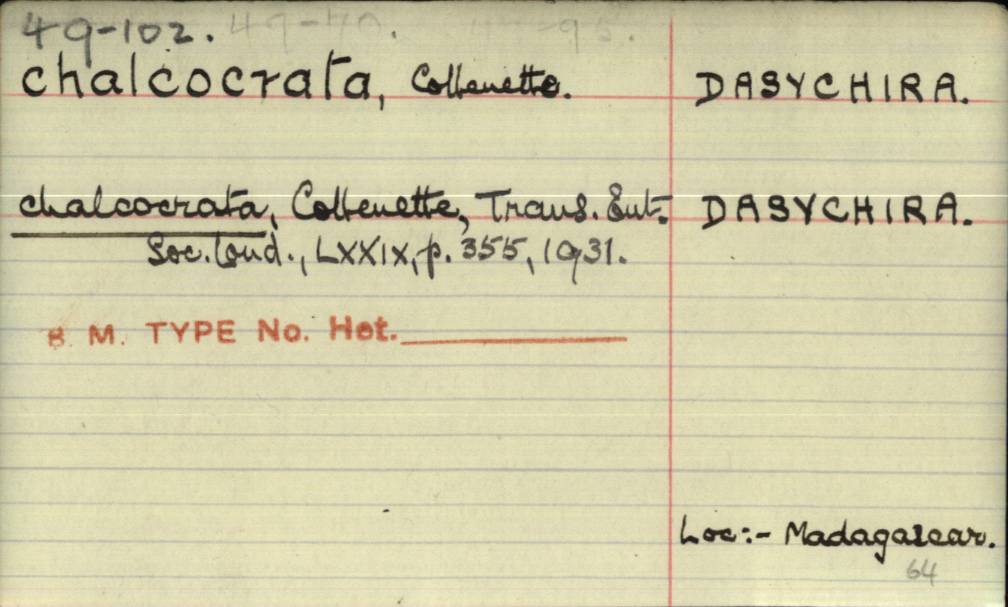 49-102. 49-70. 95.
chalcocrata, Collenette. DASYCHIRA.
chalcocrata, Collenette, Trans. Ent. DASYCHIRA.
Soc. Lond., LXXIX, p. 355, 1931.
B. M. TYPE No. Het.
Loc:- Madagascar.
64